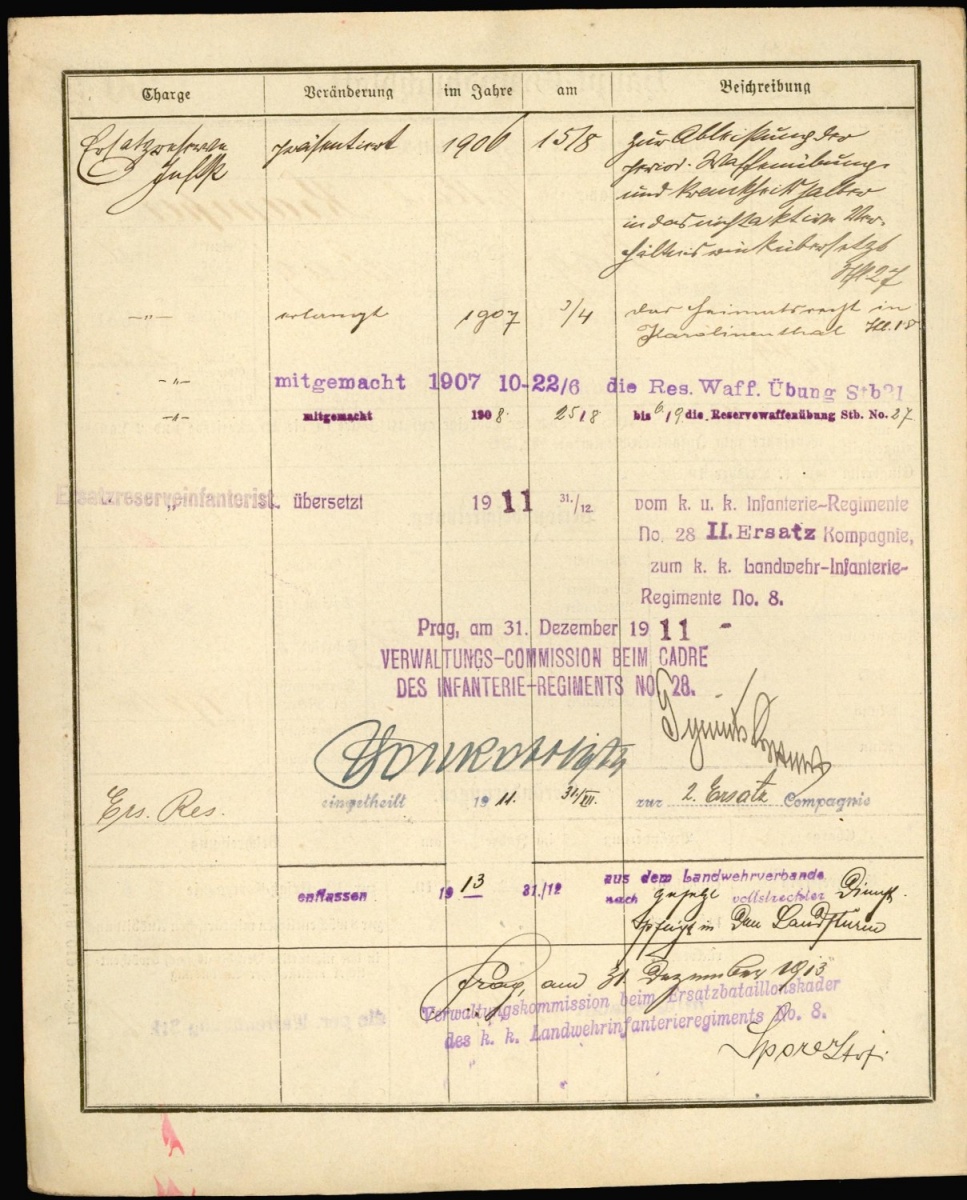 Charge Veränderung im Jahre am Beschreibung
Ersatzreserve präsentiert 1906 15/8 zur Ableistung der
period. Waffenübung
und krankheitshalber
in das nichtaktive Ver-
hältnis rückübersetzt
27
-„- erlangt 1907 3/4 das Heimatsrecht in
Karolinenthal
-„- mitgemacht 1907 10-22/6 die Res. Waff. Übung Stb
-„- mitgemacht 1908 25/8 bis 6/9 die Reservewaffenübung Stb. No. 27
Ersatzreserveinfanterist übersetzt 1911 31./12. vom k. u. k. Infanterie-Regimente
No. 28 II. Ersatz Kompagnie,
zum k. k. Landwehr-Infanterie-
Regimente No. 8.
Prag, am 31. Dezember 1911 -
VERWALTUNGS-COMMISSION BEIM CADRE
DES INFANTERIE-REGIMENTS NO. 28.
Ers. Res. eingetheilt 1911. 31/XII. zur 2. Ersatz Compagnie
entlassen 1913 31./12 aus dem Landwehrverbande
nach vollstreckter Dienst
in den Landsturm
Prag, am 31. Dezember 1913
Verwaltungskommission beim Ersatzbataillonskader
des k. k. Landwehrinfanterieregiments No. 8.